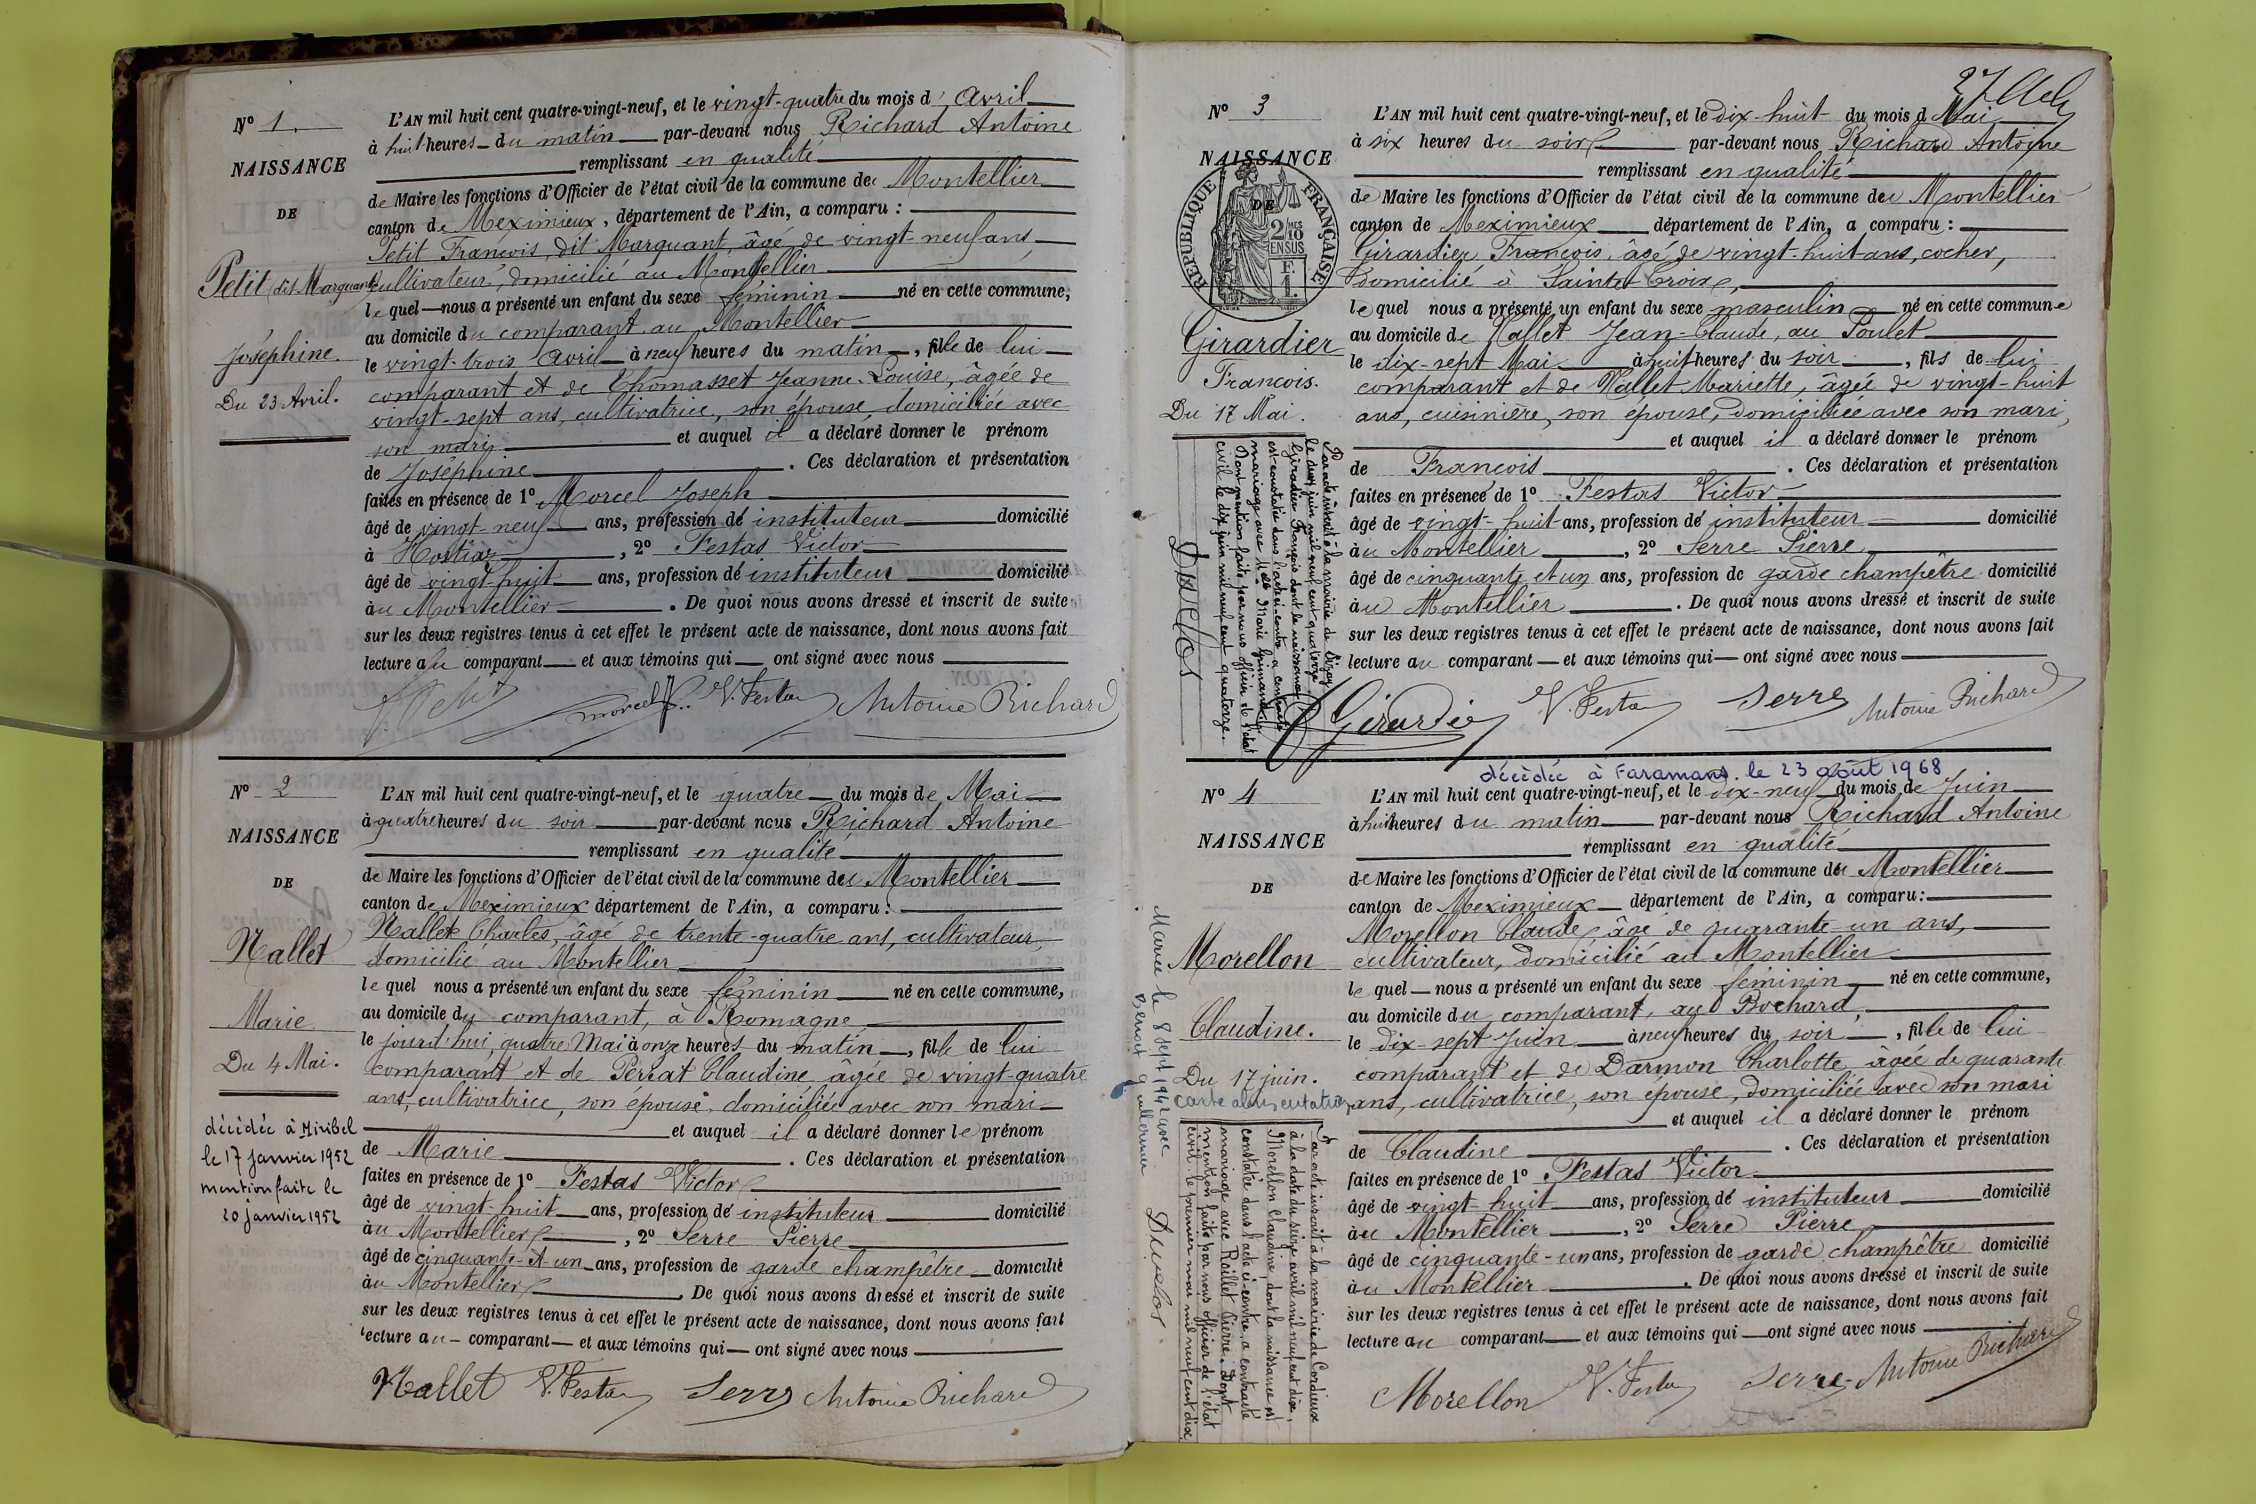 N° 1.
NAISSANCE
DE
Petit dit Marquant
Joséphine.
Du 23 Avril.
L'AN mil huit cent quatre-vingt-neuf, et le vingt-quatre du mois d' Avril
à huit heures du matin par-devant nous Richard Antoine
remplissant en qualité
de Maire les fonctions d'Officier de l'état civil de la commune de Montellier
canton de Meximieux, département de l'Ain, a comparu :
Petit François dit Marquant, âgé de vingt-neuf ans,
cultivateur, domicilié au Montellier
lequel nous a présenté un enfant du sexe féminin né en cette commune,
au domicile du comparant, au Montellier
le vingt-trois Avril à neuf heures du matin, fille de lui
comparant et de Thomasset Jeanne-Louise, âgée de
vingt-sept ans, cultivatrice, son épouse, domiciliée avec
son mari et auquel il a déclaré donner le prénom
de Joséphine. Ces déclaration et présentation
faites en présence de 1° Morcel Joseph
âgé de vingt-neuf ans, profession de instituteur domicilié
à Hostiaz, 2° Festas Victor
âgé de vingt-huit ans, profession de instituteur domicilié
au Montellier. De quoi nous avons dressé et inscrit de suite
sur les deux registres tenus à cet effet le présent acte de naissance, dont nous avons fait
lecture au comparant et aux témoins qui ont signé avec nous
Petit Morcel J. V. Festas Antoine Richard
N° 2
NAISSANCE
DE
Nallet
Marie
Du 4 Mai.
décédée à Miribel
le 17 janvier 1952
mention faite le
20 janvier 1952
L'AN mil huit cent quatre-vingt-neuf, et le quatre du mois de Mai
à quatre heures du soir par-devant nous Richard Antoine
remplissant en qualité
de Maire les fonctions d'Officier de l'état civil de la commune du Montellier
canton de Meximieux département de l'Ain, a comparu :
Nallet Charles, âgé de trente-quatre ans, cultivateur,
domicilié au Montellier
lequel nous a présenté un enfant du sexe féminin né en cette commune,
au domicile du comparant, à Romagne
le jourd'hui, quatre Mai à onze heures du matin, fille de lui
comparant et de Perrat Claudine âgée de vingt-quatre
ans, cultivatrice, son épouse, domiciliée avec son mari
et auquel il a déclaré donner le prénom
de Marie. Ces déclaration et présentation
faites en présence de 1° Festas Victor
âgé de vingt-huit ans, profession de instituteur domicilié
au Montellier, 2° Serre Pierre
âgé de cinquante-et-un ans, profession de garde champêtre domicilié
au Montellier. De quoi nous avons dressé et inscrit de suite
sur les deux registres tenus à cet effet le présent acte de naissance, dont nous avons fait
lecture au comparant et aux témoins qui ont signé avec nous
Nallet V. Festas Serre Antoine Richard
27
N° 3
NAISSANCE
DE
REPUBLIQUE FRANÇAISE
2/10 EN SUS
Girardier
François.
Du 17 Mai.
Par acte inscrit à la mairie de
le deux juin mil neuf cent quatorze
Girardier François dont la naissance
est constatée dans l'acte ci-contre a contracté
mariage avec Melle Marie
Dont mention faite par nous officier de l'état
civil le dix juin mil neuf cent quatorze.
Duclos
L'AN mil huit cent quatre-vingt-neuf, et le dix-huit du mois d Mai
à six heures du soir par-devant nous Richard Antoine
remplissant en qualité
de Maire les fonctions d'Officier de l'état civil de la commune du Montellier
canton de Meximieux département de l'Ain, a comparu :
Girardier François, âgé de vingt-huit ans, cocher,
domicilié à Sainte-Croix,
lequel nous a présenté un enfant du sexe masculin né en cette commune
au domicile de Nallet Jean-Claude, au Poulet
le dix-sept Mai à huit heures du soir, fils de lui
comparant et de Nallet Mariette, âgée de vingt-huit
ans, cuisinière, son épouse, domiciliée avec son mari,
et auquel il a déclaré donner le prénom
de François. Ces déclaration et présentation
faites en présence de 1° Festas Victor
âgé de vingt-huit ans, profession de instituteur domicilié
au Montellier, 2° Serre Pierre
âgé de cinquante et un ans, profession de garde champêtre domicilié
au Montellier. De quoi nous avons dressé et inscrit de suite
sur les deux registres tenus à cet effet le présent acte de naissance, dont nous avons fait
lecture au comparant et aux témoins qui ont signé avec nous
Girardier V. Festas Serre Antoine Richard
décédée à Faramans le 23 août 1968
N° 4
NAISSANCE
DE
Morellon
Claudine.
Du 17 juin.
carte alimentation
Mariée le 8 sept 1942 avec
Benoit Guillermin
Par acte inscrit à la mairie de Cordieux
à la date du seize avril mil neuf cent dix,
Morellon Claudine, dont la naissance est
constatée dans l'acte ci-contre, a contracté
mariage avec Raillet Pierre. Dont
mention faite par nous officier de l'état
civil le premier mai mil neuf cent dix
Duclos
L'AN mil huit cent quatre-vingt-neuf, et le dix-neuf du mois de Juin
à huit heures du matin par-devant nous Richard Antoine
remplissant en qualité
de Maire les fonctions d'Officier de l'état civil de la commune du Montellier
canton de Meximieux département de l'Ain, a comparu :
Morellon Claude, âgé de quarante-un ans,
cultivateur, domicilié au Montellier
lequel nous a présenté un enfant du sexe féminin né en cette commune,
au domicile du comparant, au Bochard
le dix-sept Juin à neuf heures du soir, fille de lui
comparant et de Darmon Charlotte âgée de quarante
ans, cultivatrice, son épouse, domiciliée avec son mari
et auquel il a déclaré donner le prénom
de Claudine. Ces déclaration et présentation
faites en présence de 1° Festas Victor
âgé de vingt-huit ans, profession de instituteur domicilié
au Montellier, 2° Serre Pierre
âgé de cinquante-un ans, profession de garde champêtre domicilié
au Montellier. De quoi nous avons dressé et inscrit de suite
sur les deux registres tenus à cet effet le présent acte de naissance, dont nous avons fait
lecture au comparant et aux témoins qui ont signé avec nous
Morellon V. Festas Serre Antoine Richard